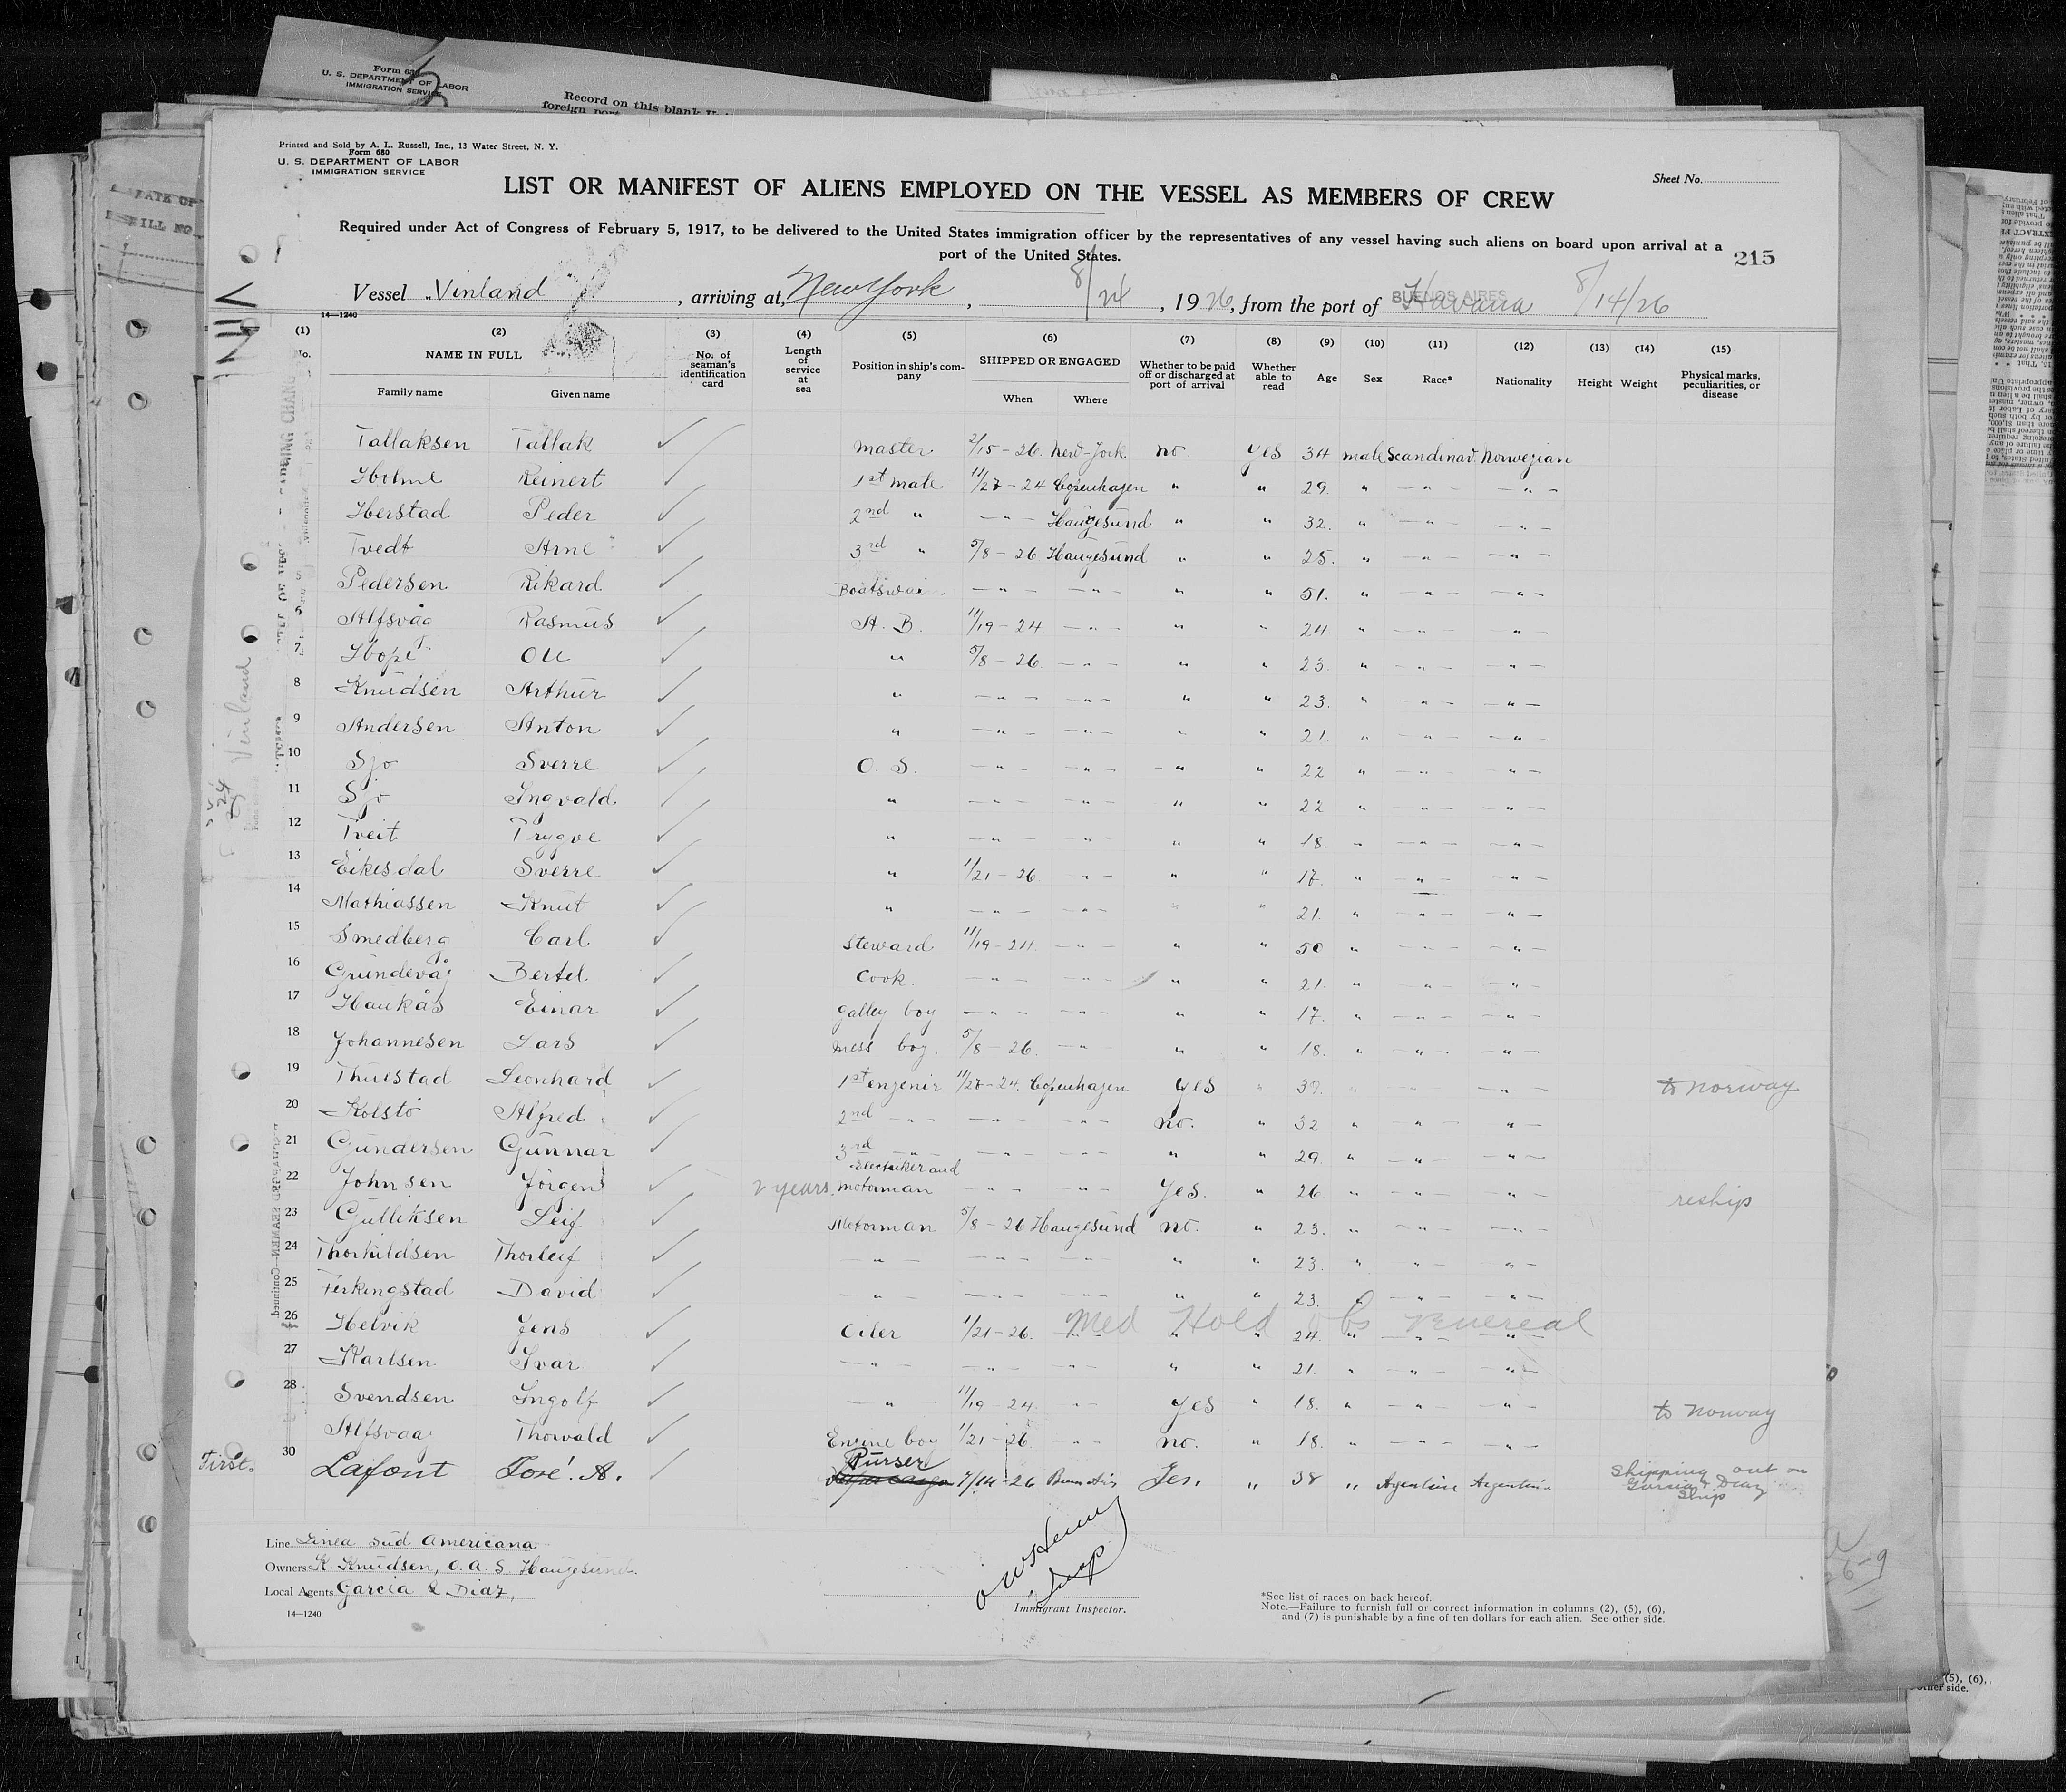 Form 680
U. S. DEPARTMENT OF LABOR
IMMIGRATION SERVICE
Record on this blank
foreign port
Printed and Sold by A. L. Russell, Inc., 13 Water Street, N. Y.
Form 680
U. S. DEPARTMENT OF LABOR
IMMIGRATION SERVICE
Sheet No.
LIST OR MANIFEST OF ALIENS EMPLOYED ON THE VESSEL AS MEMBERS OF CREW
Required under Act of Congress of February 5, 1917, to be delivered to the United States immigration officer by the representatives of any vessel having such aliens on board upon arrival at a
port of the United States.
215
Vessel Vinland, arriving at, New York, 8/24, 1926, from the port of BUENOS AIRES Havana 8/14/26
14—1240
(1) (2) (3) (4) (5) (6) (7) (8) (9) (10) (11) (12) (13) (14) (15)
No. NAME IN FULL No. of seaman's identification card Length of service at sea Position in ship's company SHIPPED OR ENGAGED Whether to be paid off or discharged at port of arrival Whether able to read Age Sex Race* Nationality Height Weight Physical marks, peculiarities, or disease
Family name Given name When Where
Tallaksen Tallak ✓ master 2/15-26. New-York no yes 34 male Scandinav. Norwegian
Holme Reinert ✓ 1st mate 11/27-24 Copenhagen " " 29. " — " — — " —
Herstad Peder ✓ 2nd " — " — Haugesund " " 32. " — " — — " —
Tvedt Arne ✓ 3rd " 5/8-26 Haugesund " " 25. " — " — — " —
Pedersen Rikard ✓ Boatswai — " — — " — " " 51. " — " — — " —
6 Alfsvåg Rasmus ✓ A. B. 11/19-24 — " — " " 24. " — " — — " —
7 Hope Ole ✓ " 5/8-26 — " — " " 23. " — " — — " —
8 Knudsen Arthur ✓ " — " — — " — " " 23. " — " — — " —
9 Andersen Anton ✓ " — " — — " — " " 21. " — " — — " —
10 Sjo Sverre ✓ O. S. — " — — " — " " 22 " — " — — " —
11 Sjo Ingvald ✓ " — " — — " — " " 22 " — " — — " —
12 Tveit Trygve ✓ " — " — — " — " " 18. " — " — — " —
13 Eikesdal Sverre ✓ " 1/21-26. — " — " " 17. " — " — — " —
14 Mathiassen Knut ✓ " — " — — " — " " 21. " — " — — " —
15 Smedberg Carl ✓ Steward 11/19-24. — " — " " 50 " — " — — " —
16 Grundevåg Bertel ✓ Cook. — " — — " — " " 21. " — " — — " —
17 Haukås Einar ✓ galley boy — " — — " — " " 17. " — " — — " —
18 Johannesen Lars ✓ mess boy. 5/8-26. — " — " " 18. " — " — — " —
19 Thuestad Leonhard ✓ 1st enjenir 11/27-24. Copenhagen yes " 39. " — " — — " — to Norway
20 Kolstø Alfred ✓ 2nd — " — — " — — " — no. " 32 " — " — — " —
21 Gundersen Gunnar ✓ 3rd — " — — " — — " — " " 29. " — " — — " —
22 Johnsen Jörgen ✓ 2 years. Electriker and motorman — " — — " — Yes. " 26. " — " — — " — reship
23 Gulliksen Leif ✓ Motorman 5/8-26 Haugesund no. " 23. " — " — — " —
24 Thorkildsen Thorleif ✓ — " — — " — — " — " " 23. " — " — — " —
25 Ferkingstad David ✓ — " — — " — — " — " " 23. " — " — — " —
26 Helvik Jens ✓ Oiler 1/21-26. — " — " " 24. " — " — — " — Med Hold Obs Venereal
27 Karlsen Ivar ✓ — " — — " — — " — " " 21. " — " — — " —
28 Svendsen Ingolf ✓ — " — 11/19-24. — " — yes " 18. " — " — — " — to Norway
Alfsvaag Thorvald ✓ Engine boy 1/21-26. — " — no. " 18. " — " — — " —
First. 30 Lafont José. A. ✓ Purser 7/14-26 Buen Air Yes. " 38 " Argentine Argentina Shipping out on Garcia & Diaz Ship
Line Linea Sud Americana
Owners K. Knudsen, O. A. S. Haugesund.
Local Agents Garcia & Diaz,
14—1240
Immigrant Inspector.
*See list of races on back hereof.
Note.—Failure to furnish full or correct information in columns (2), (5), (6),
and (7) is punishable by a fine of ten dollars for each alien. See other side.
Vinland
(5), (6),
other side.